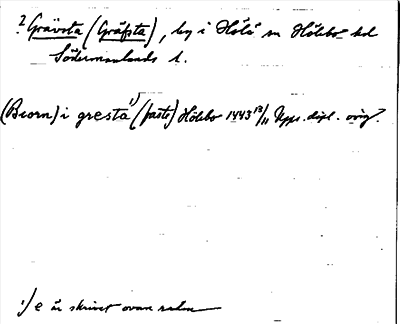 ? Grävsta (Gräfsta), by i Hölö sn Hölebo hd
Södermanlands l.
(Beorn) i gresta ¹) (fasti) Hölebo 1443 13/11 Upps. dipl. orig.
¹) e är skrivet ovan raden